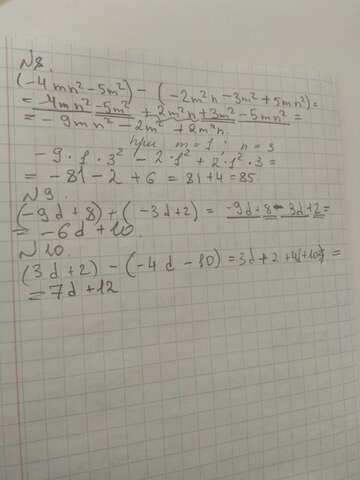 №8.
(-4mn²-5m²) - (-2m²n-3m²+5mn²)=
= -4mn²-5m²+2m²n+3m²-5mn²=
= -9mn²-2m²+2m²n.
при m=1; n=3
-9·1·3²-2·1²+2·1²·3=
= -81-2+6=81+4=85
№9.
(-9d+8)+(-3d+2)= -9d+8-3d+2=
= -6d+10.
№10.
(3d+2)-(-4d-10)=3d+2+4d+10=
=7d+12